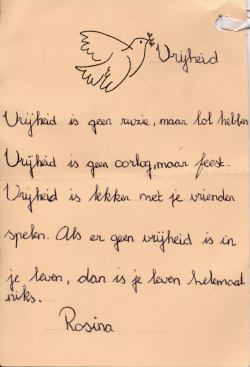 Vrijheid
Vrijheid is geen ruzie, maar lol hebben
Vrijheid is geen oorlog, maar feest.
Vrijheid is lekker met je vrienden
spelen. Als er geen vrijheid is in
je leven, dan is je leven helemaal
niks.
Rosina